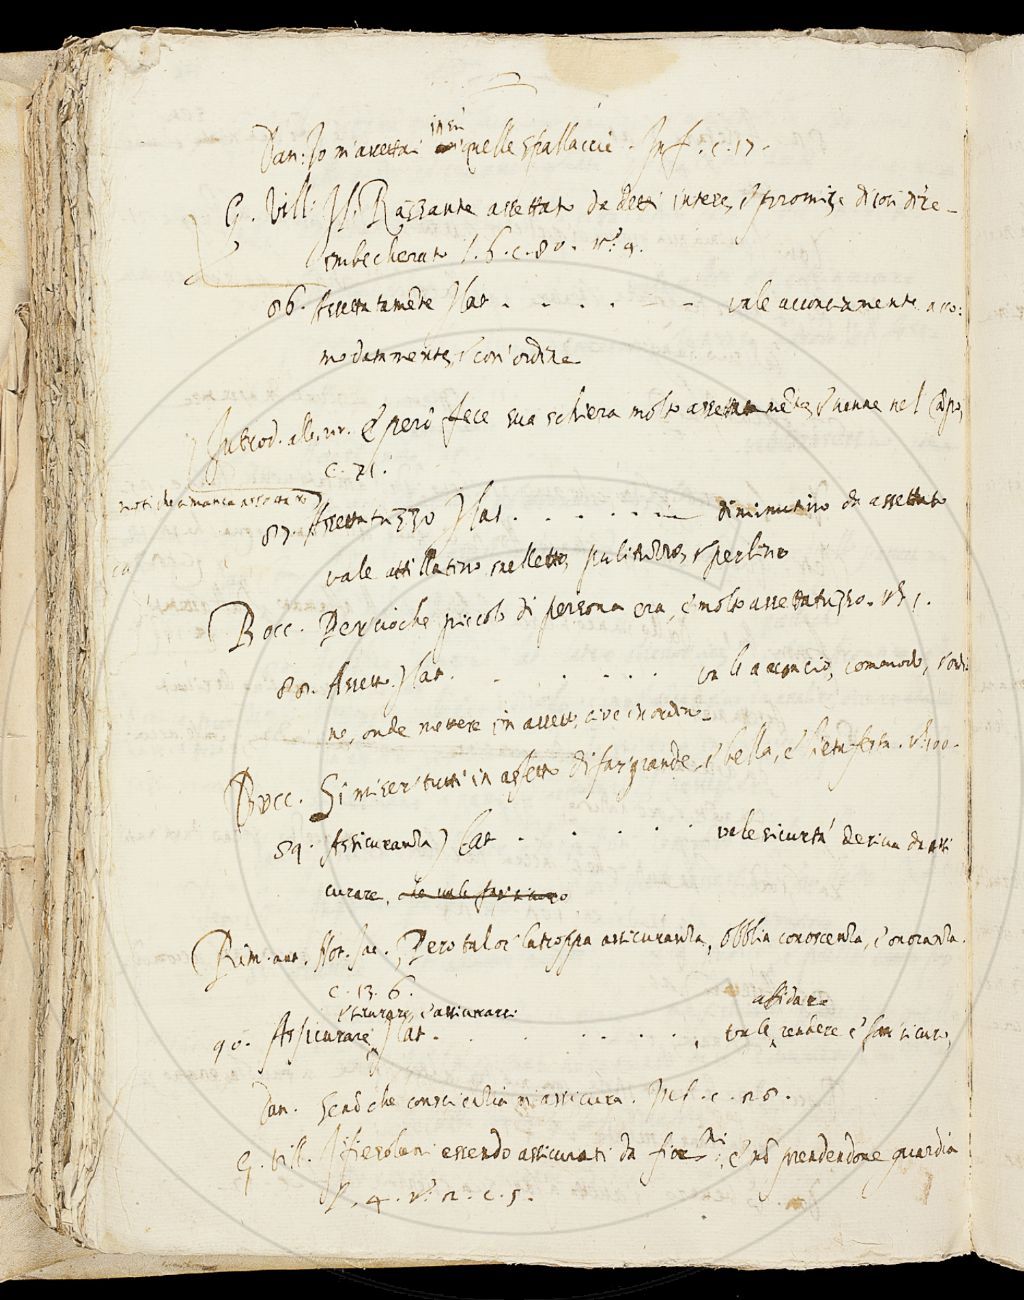 Dan: Io m'assettai in su quelle spallaccie. Inf. c. 17.
G. Vill: Il Razzante assettato da detti intere, e promise di così dire
imbecherato l. 6. c. 80. nº 4.
86. Assettatamẽte) lat . . . . . . vale acconciamente, acco:
modatamente, e con' ordine
e però fece sua schiera molto assettatamẽte, e venne nel Cãpo,
c. 71.
noti che ci manca assettato
87. Assettatuzzo) lat . . . . . . diminutivo da assettato
vale attillatino, snelletto, pulito, e perlino
Bocc. Percioche piccolo di persona era, e molto assettatuzzo. nº 1.
88. Assetto) lat. . . . . . . vale acconcio, commodo, e ordi
ne, onde mettere in assetto, cioè in ordine
Bocc. Si miser' tutti in assetto di far grande, e bella, e lieta festa. nº 100.
89. Assicuranza) lat . . . . . . vale sicurtà deriva da assi
curare,
Rim. ant. Not. Iac. Però talor' la troppa assicuranza, obblia conoscenza, e onoranza.
c. 13. 6.
e sicurare, e assicurarsi
affidare
90. Assicurare) lat . . . . . . vale, rendere e far sicuro,
Dan. Se nõ che conscienzia m'assicura. Inf. c. 28.
G. Vill. I fiesolani essendo assicurati da fior.ni, e nõ prendendone guardia
l. 4. nº 2. c. 5.